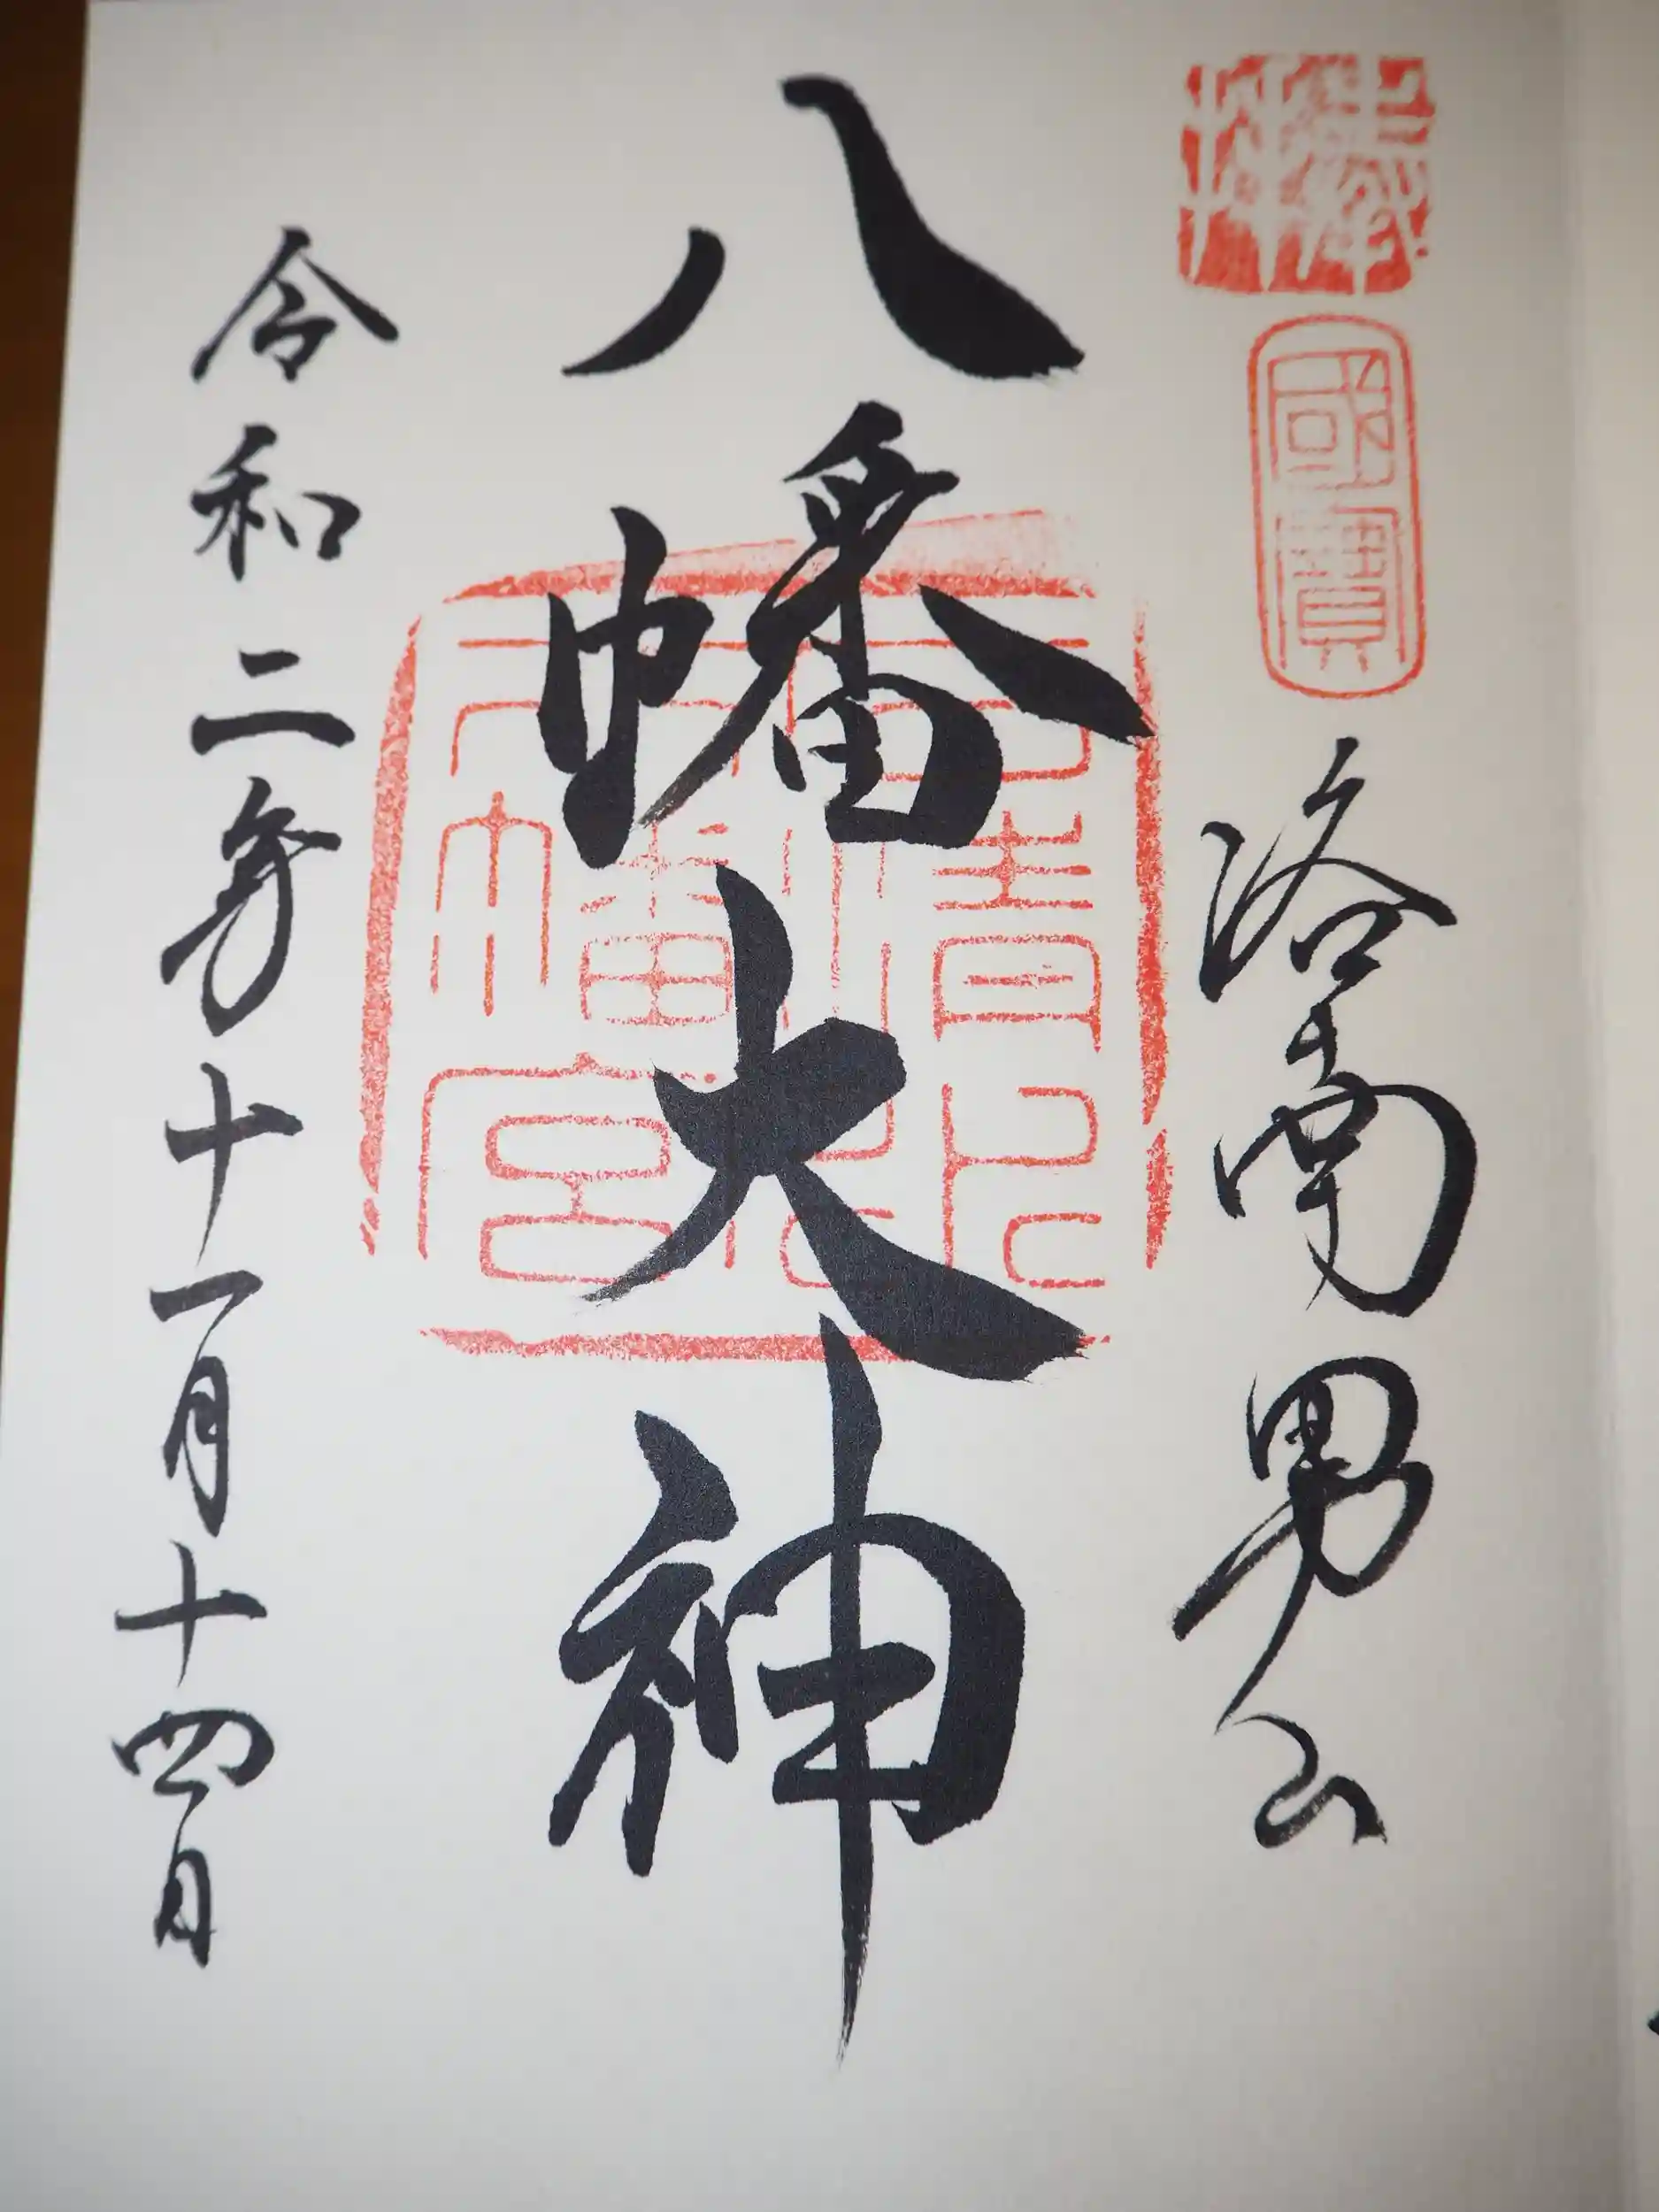 奉拝
國寶
洛南男山
八幡大神
石清水
八幡宮
令和二年十一月十四日